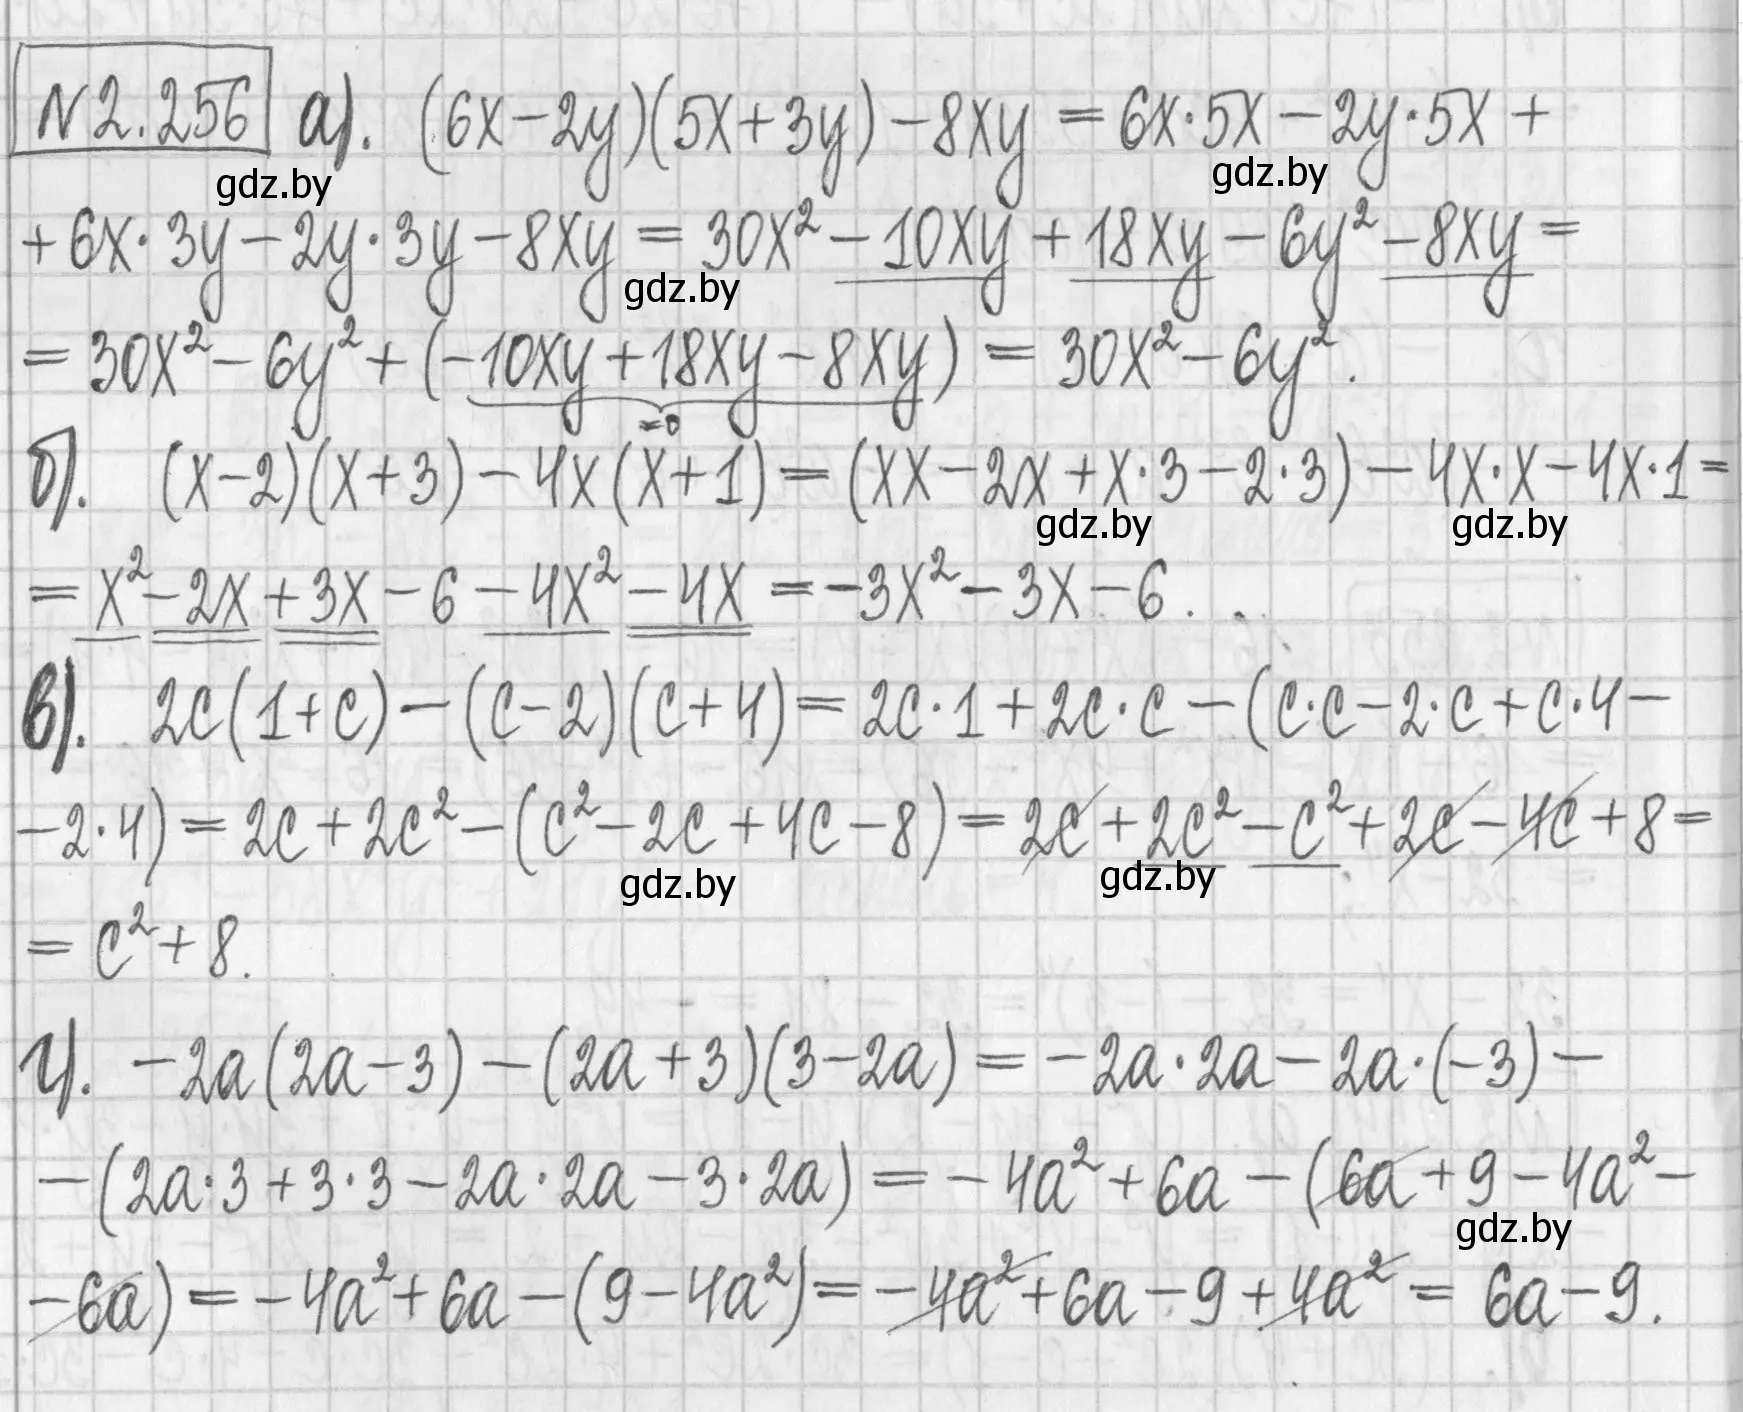 N 2.256 а). (6x-2y)(5x+3y)-8xy = 6x·5x-2y·5x+
gdz.by gdz.by
+6x·3y-2y·3y-8xy = 30x²-10xy+18xy-6y²-8xy=
gdz.by
= 30x²-6y²+(-10xy+18xy-8xy) = 30x²-6y².
=0
б). (x-2)(x+3)-4x(x+1) = (xx-2x+x·3-2·3)-4x·x-4x·1=
gdz.by gdz.by
= x²-2x+3x-6-4x²-4x = -3x²-3x-6.
в). 2c(1+c)-(c-2)(c+4) = 2c·1+2c·c-(c·c-2·c+c·4-
-2·4) = 2c+2c²-(c²-2c+4c-8) = 2c+2c²-c²+2c-4c+8=
gdz.by gdz.by
= c²+8.
г). -2a(2a-3)-(2a+3)(3-2a) = -2a·2a-2a·(-3)-
-(2a·3+3·3-2a·2a-3·2a) = -4a²+6a-(6a+9-4a²-
gdz.by
-6a) = -4a²+6a-(9-4a²) = -4a²+6a-9+4a² = 6a-9.